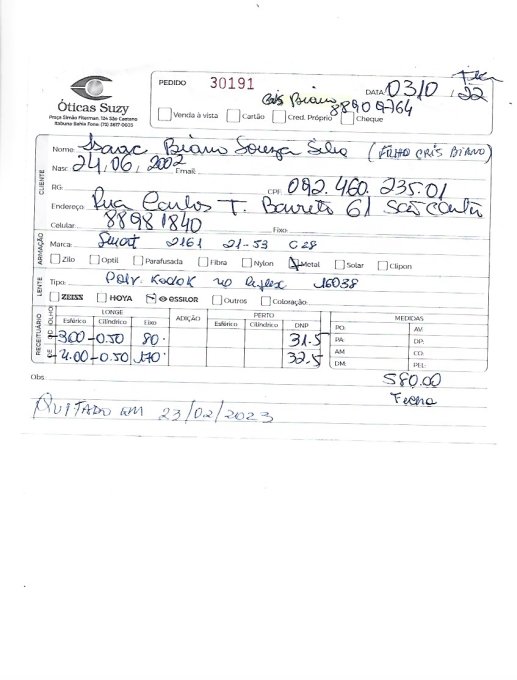 PEDIDO 30191
DATA 03/10/22
Cris Biano
88909764
Óticas Suzy
Praça Simão Fitermann, 124 São Caetano
Itabuna Bahia Fone: (73) 3617-0035
Venda à vista Cartão Cred. Próprio Cheque
CLIENTE
Nome: Isaac Biano Souza Silva (FILHO CRIS BIANO)
Nasc. 24.06.2002 Email:
RG: CPF: 092.460.235.01
Endereço: Rua Carlos T. Barreto 61 São
Celular: 88981840 Fixo:
ARMAÇÃO
Marca: Smart 2161 21-53 C28
Zilo Optil Parafusada Fibra Nylon Metal Solar Clipon
LENTE
Tipo: Poly. Kodak no reflex 16038
ZEISS HOYA essilor Outros Coloração:
RECEITUÁRIO
OLHO LONGE ADIÇÃO PERTO DNP MEDIDAS
Esférico Cilíndrico Eixo Esférico Cilíndrico
OD -3.00 -0.50 80. 31.5
OE -4.00 -0.50 170. 32.5
PO: AV:
PA: DP:
AM: CO:
DM: PEL:
Obs.: 580.00
Ficha
QUITADO EM 23/02/2023